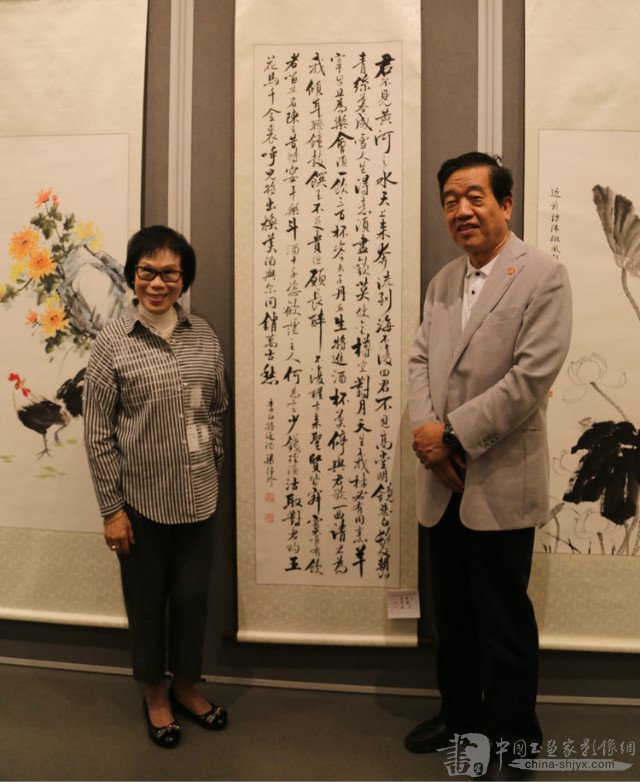 君不見黃河之水天上來奔流到海不復回君不見高堂明鏡悲白髮朝如
青絲暮成雪人生得意須盡歡莫使金樽空對月天生我材必有用烹羊
宰牛且為樂會須一飲三百杯岑夫子丹丘生將進酒杯莫停與君歌一曲請君為
我傾耳聽鐘鼓饌玉不足貴但願長醉不復醒古來聖賢皆寂寞惟有飲
者留其名陳王昔時宴平樂斗酒十千恣歡謔主人何為言少錢徑須沽取對君酌五
花馬千金裘呼兒將出換美酒與爾同銷萬古愁
李白將進酒
中国书画家影像網
www.china-shjyx.com